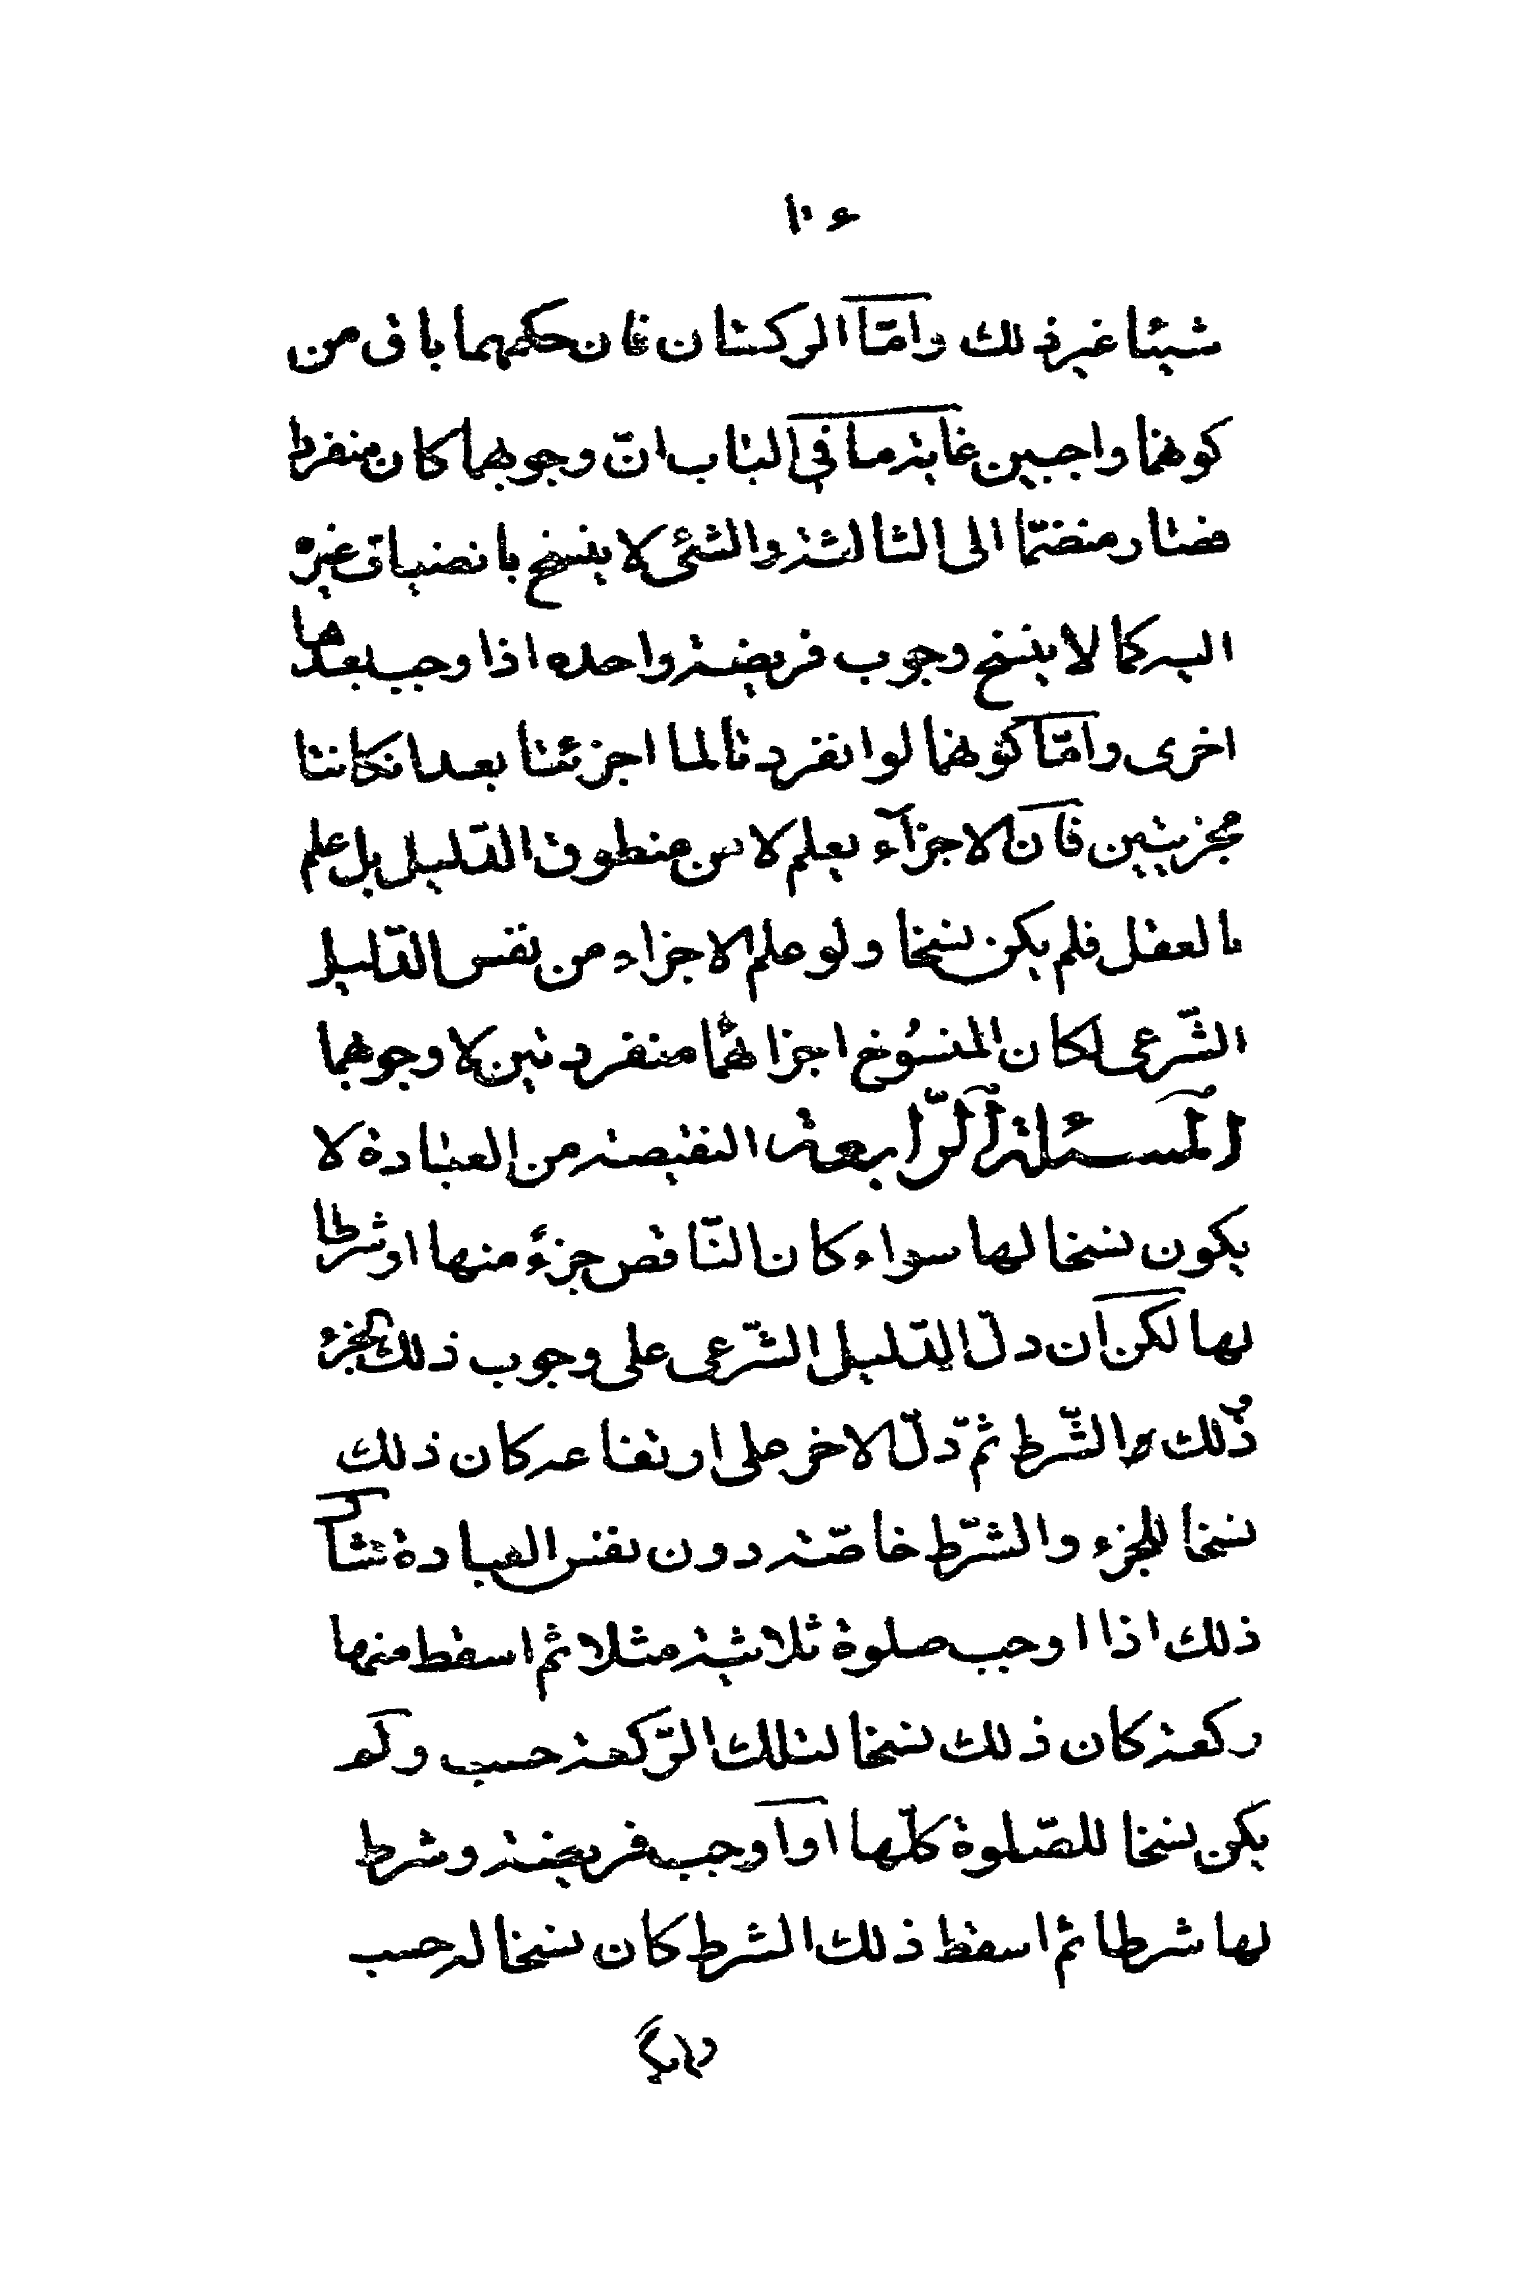 ١٠٤
شيئا غير ذلك وامّا الركعتان فان حكمهما باق من
كونهما واجبين غاية ما فى الباب انّ وجوبهما كان منفردا
فصار منضمّا الى الثالثة والشئ لا ينسخ بانضياف غيره
اليه كما لا ينسخ وجوب فريضة واحده اذا وجب بعدها
اخرى وامّا كونهما لو انفردتا لما اجزئتا بعد انكانتا
مجزيتين فانّ الاجزآء يعلم لا من منطوق الدّليل بل علم
بالعقل فلم يكن نسخا ولو علم الاجزاء من نفس الدّليل
الشّرعى لكان المنسوخ اجزائهما منفردتين لا وجوبهما
المسئلة الرّابعة النقيصة من العبادة لا
يكون نسخا لها سواء كان النّاقص جزءً منها او شرطا
لها لكن ان دلّ الدّليل الشّرعى على وجوب ذلك الجزء
وذلك الشّرط ثمّ دلّ الاخر على ارتفاعه كان ذلك
نسخا للجزء والشّرط خاصّة دون نفس العبادة مثال
ذلك اذا اوجب صلوة ثلاثية مثلا ثم اسقط منها
ركعة كان ذلك نسخا لتلك الرّكعة حسب ولم
يكن نسخا للصّلوة كلّها او اوجب فريضة وشرط
لها شرطا ثم اسقط ذلك الشرط كان نسخا له حسب